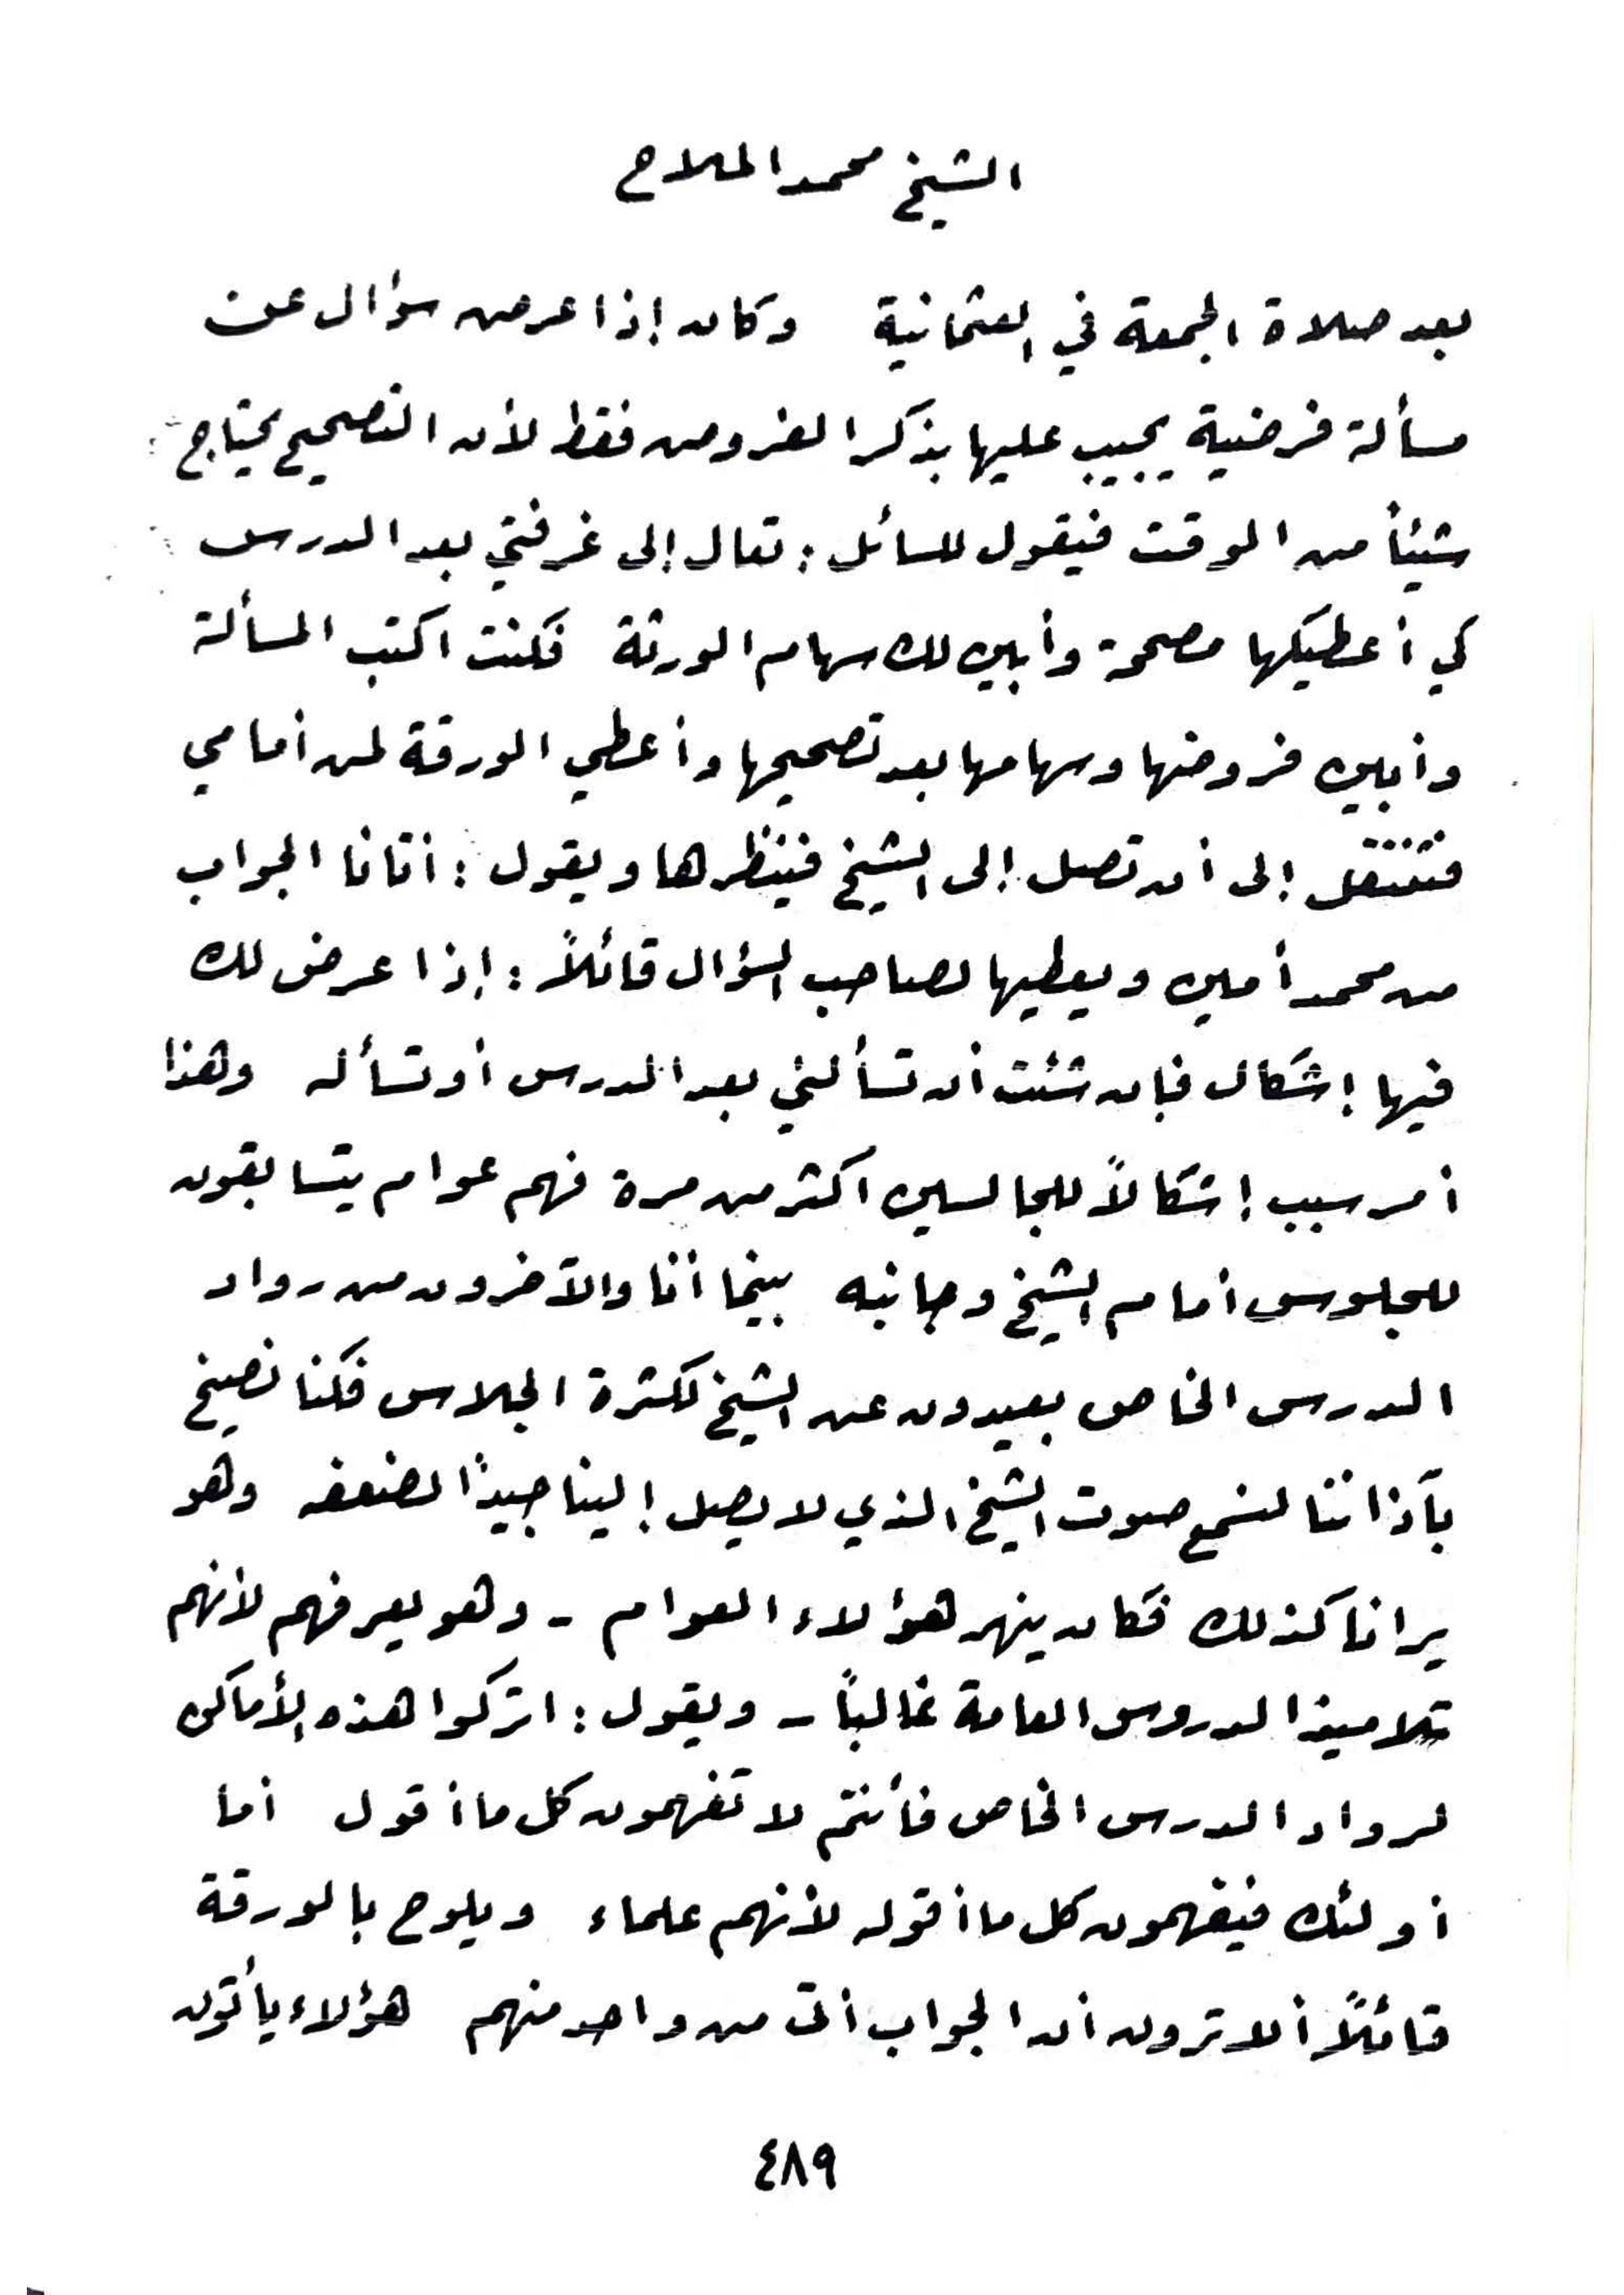 الشيخ محمد الملاح
بعد صلاة الجمعة في العثمانية وكان إذا عرض سؤال عن
مسألة فرضية يجيب عليها بذكر الفروض فقط لأن التصحيح يحتاج
شيئاً من الوقت فيقول للسائل : تعال إلى غرفتي بعد الدرس
كي أعطيكها مصححة وأبين لك سهام الورثة فكنت اكتب المسألة
وأبين فروضها وسهامها بعد تصحيحها وأعطي الورقة لمن أمامي
فتنتقل إلى أن تصل إلى الشيخ فينظرها ويقول : أتانا الجواب
من محمد أمين ويعطيها لصاحب السؤال قائلاً : إذا عرض لك
فيها إشكال فإن شئت أن تسألني بعد الدرس أو تسأله وهذا
أمر سبب إشكالاً للجالسين اكثر من مرة فهم عوام يتسابقون
للجلوس أمام الشيخ وجانبه بينما أنا والآخرون من رواد
الدرس الخاص بعيدون عن الشيخ لكثرة الجلاس فكنا نصيخ
بآذاننا لنسمع صوت الشيخ الذي لا يصل إلينا جيداً لضعفه وهو
يرانا كذلك فكان ينهر هؤلاء العوام - وهو يعرفهم لأنهم
تلاميذ الدروس العامة غالباً - ويقول : اتركوا هذه الأماكن
لرواد الدرس الخاص فأنتم لا تفهمون كل ما أقول أما
أولئك فيفهمون كل ما أقوله لأنهم علماء ويلوح بالورقة
قائلاً ألا ترون أن الجواب أتى من واحد منهم هؤلاء يأتون
٤٨٩